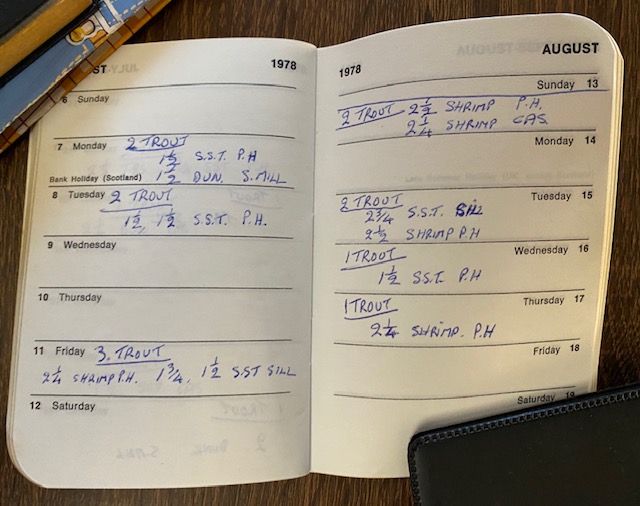 ST 1978
6 Sunday
7 Monday 2 TROUT
1½ S.S.T. P.H
Bank Holiday (Scotland) 1½ DUN. S.MILL
8 Tuesday 2 TROUT
1½, 1½ S.S.T. P.H.
9 Wednesday
10 Thursday
11 Friday 3. TROUT
2¼ SHRIMP P.H. 1¾, 1½ S.ST SILL
12 Saturday
1978 AUGUST
Sunday 13
2 TROUT 2½ SHRIMP P.H.
2¼ SHRIMP GAS
Monday 14
2 TROUT Tuesday 15
2¾ S.S.T.
2½ SHRIMP P.H
1 TROUT Wednesday 16
1½ S.S.T. P.H
1 TROUT Thursday 17
2¼ SHRIMP. P.H
Friday 18
Saturday 19